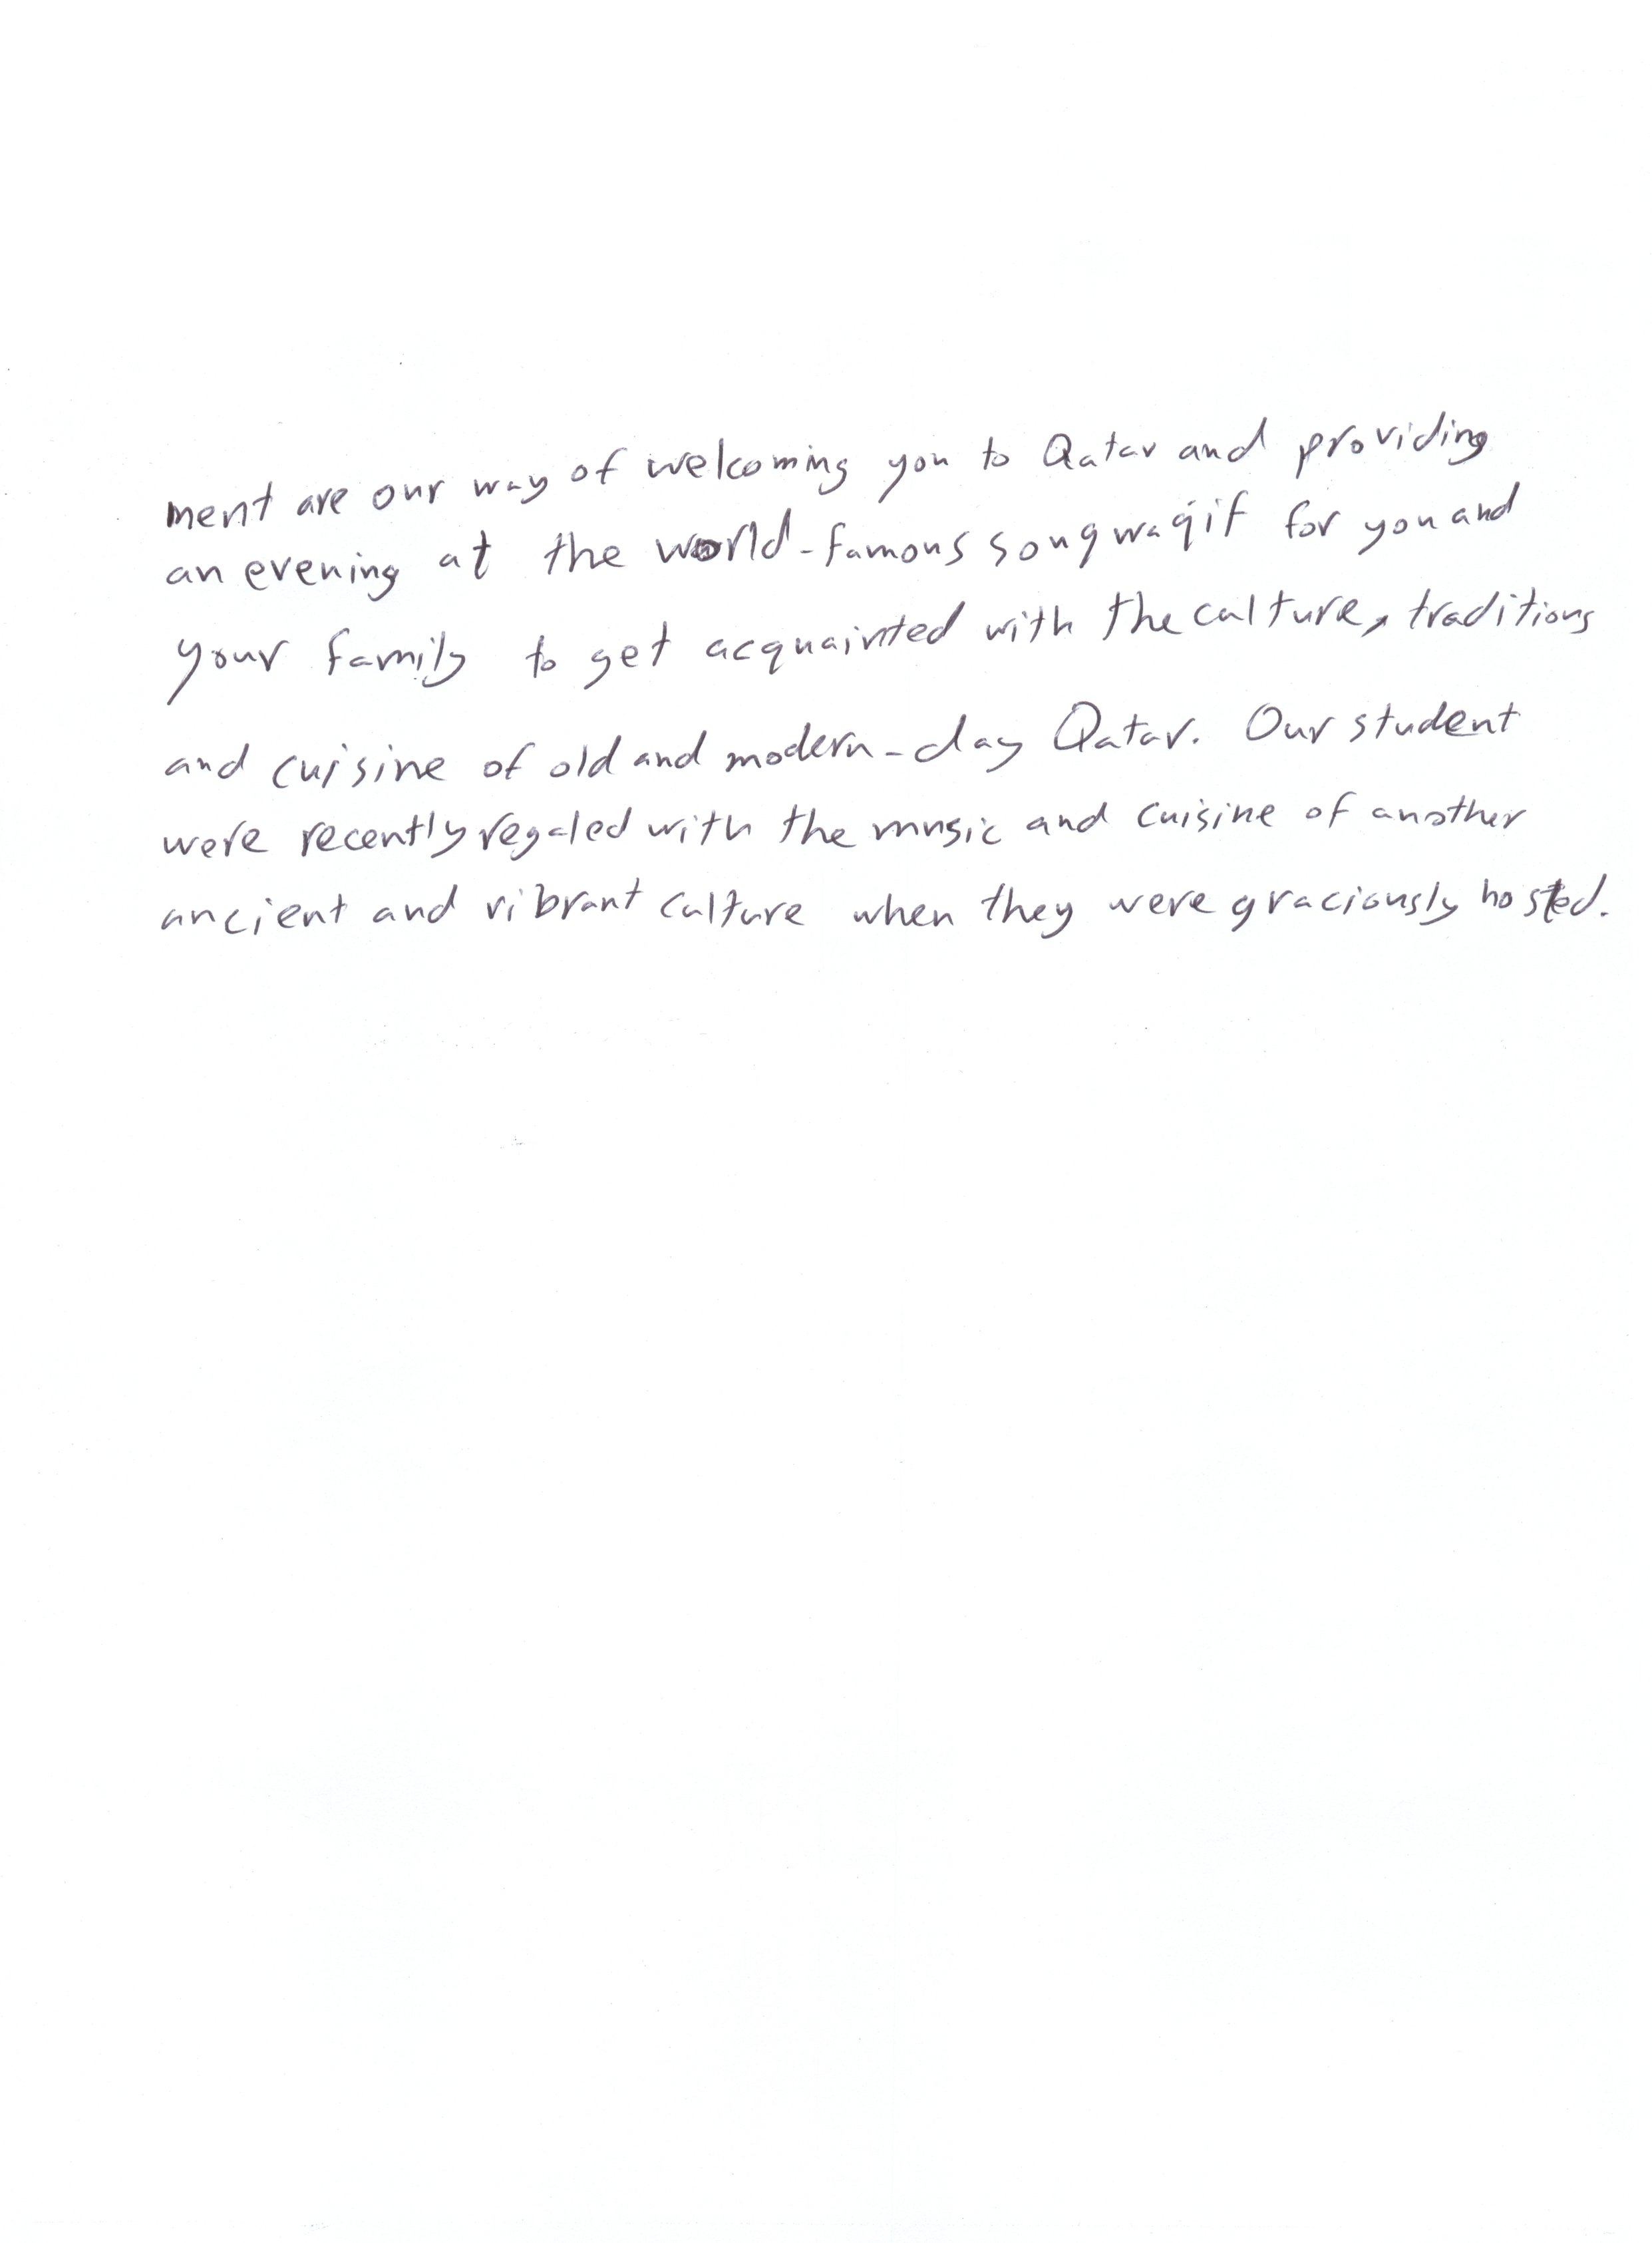 ment are our way of welcoming you to Qatar and providing
an evening at the world-famous souq waqif for you and
your family to get acquainted with the culture, traditions
and cuisine of old and modern-day Qatar. Our student
were recently regaled with the music and cuisine of another
ancient and vibrant culture when they were graciously hosted.